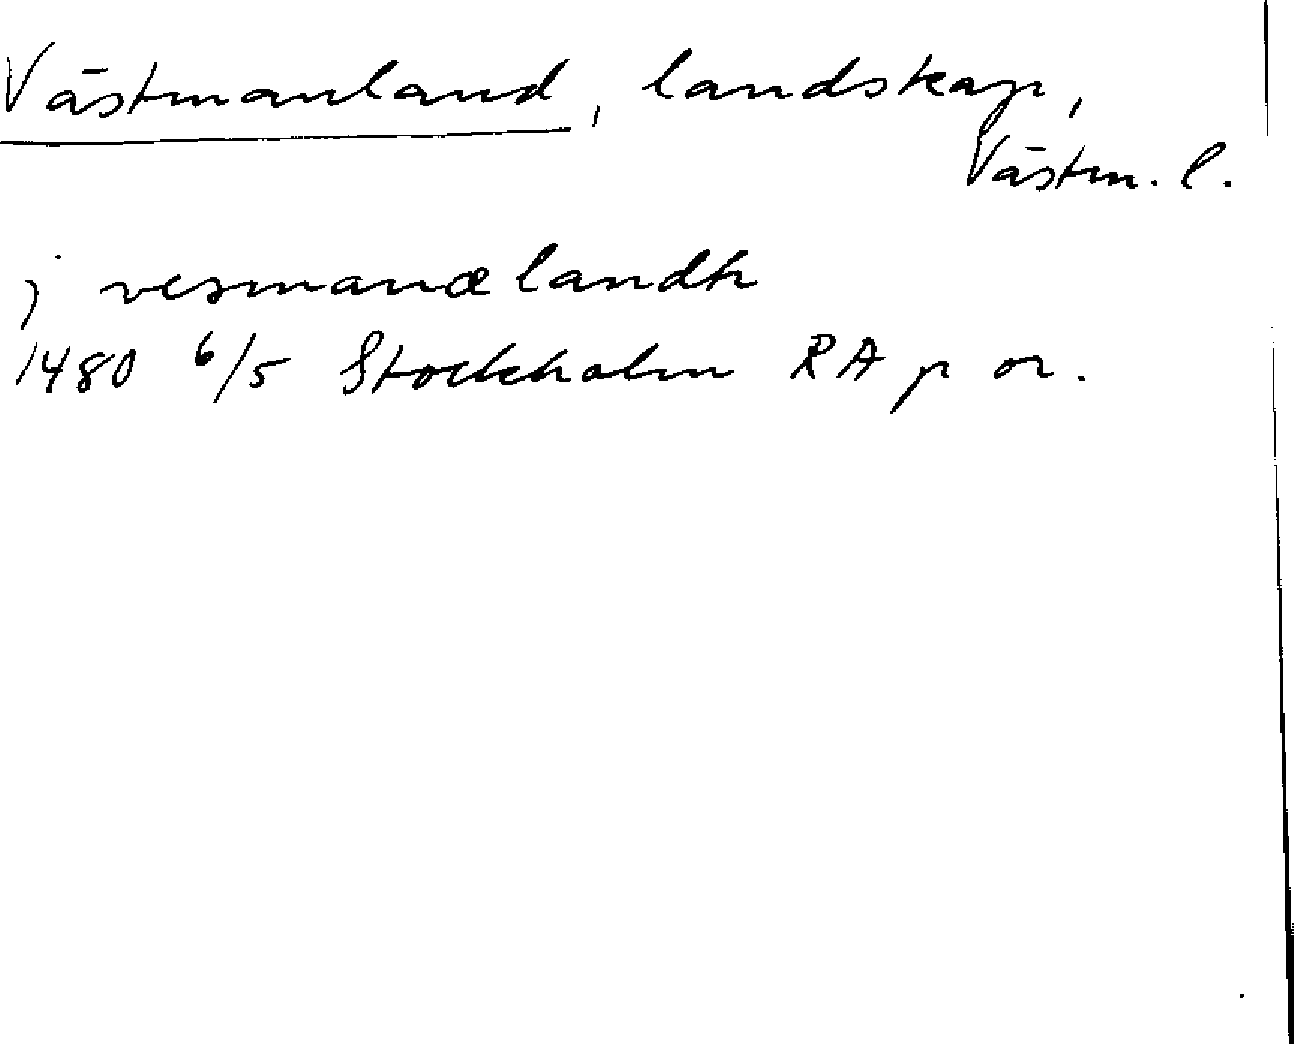 Västmanland, landskap,
Västm. l.
j vesmanælandh
1480 6/5 Stockholm RA p or.